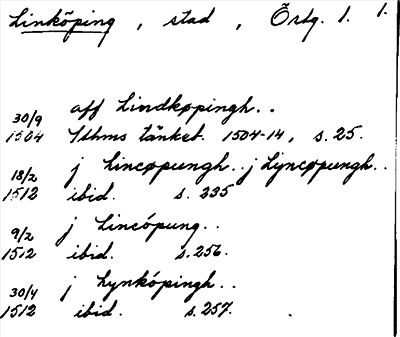 Linköping, stad, Östg. l. 1.
aff Lindkøpingh..
30/9
1504 Sthms tänkeb. 1504-14, s. 25.
j Lincøpungh.. j Lyncøpungh..
18/2
1512 ibid. s. 235
j Lincópung..
9/2
1512 ibid. s. 256.
j Lynkópingh..
30/4
1512 ibid. s. 257.